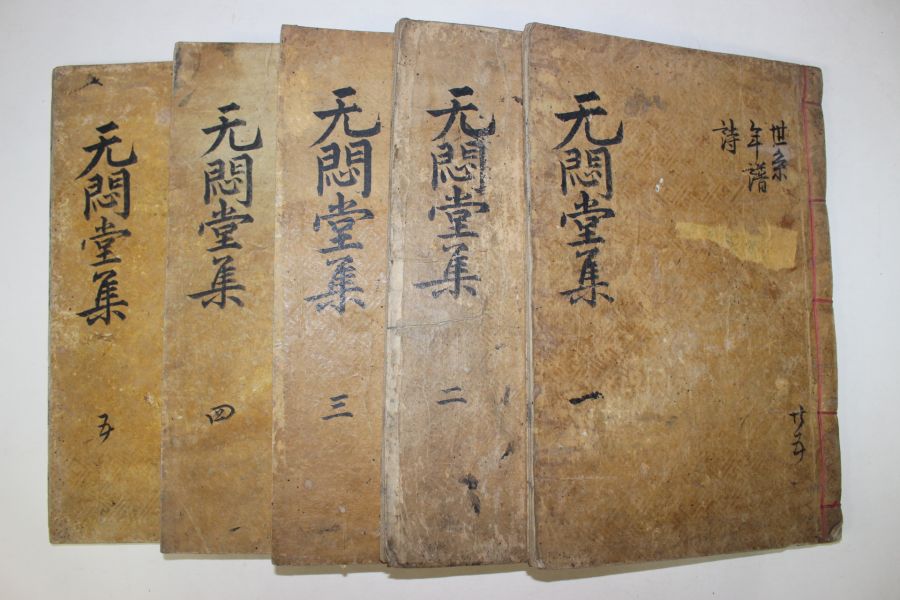 世系
年譜
詩
共五
无悶堂集 一
无悶堂集 二
无悶堂集 三
无悶堂集 四
无悶堂集 五